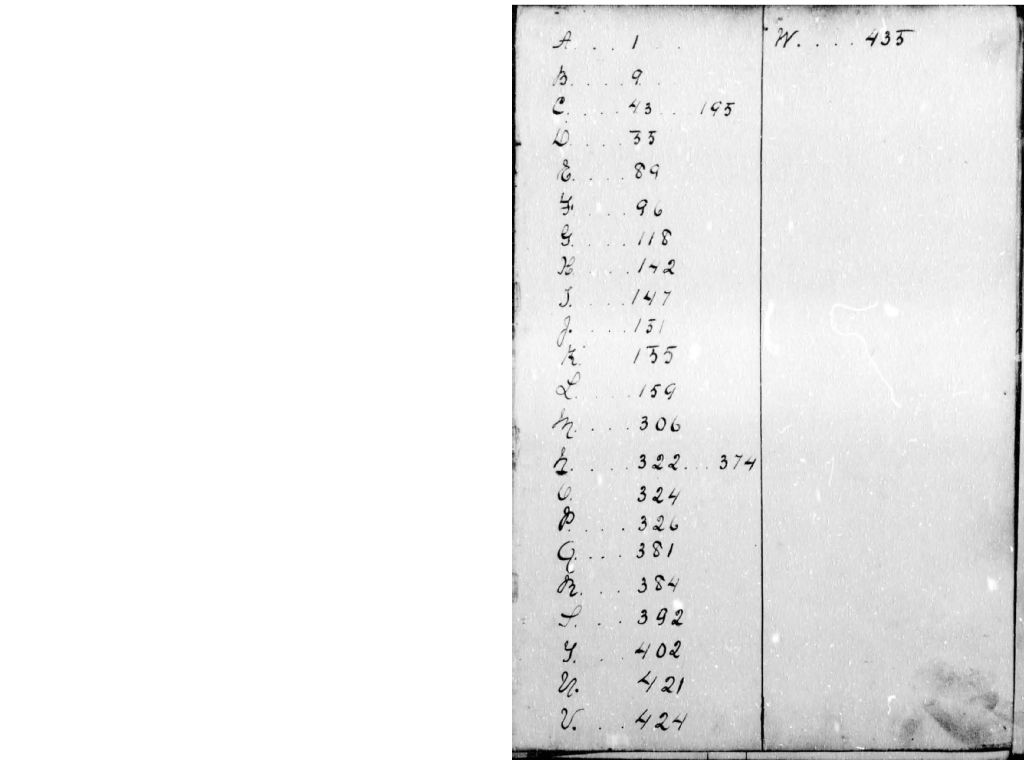 A. . . . 1 . .
B. . . . . 9 .
C. . . . . 43 . . . . 195
D. . . . . 55
E. . . . . 89
F. . . . . 96
G. . . . . 118
H. . . . . 142
I. . . . . 147
J. . . . . 151
K. . . . . 155
L. . . . . 159
M. . . . . 306
N. . . . . 322. . . 374
O. . . . . 324
P. . . . . 326
Q. . . . . 381
R. . . . 384
S. . . . 392
T. . . . 402
U. . . . 421
V. . . . 424
W. . . . . 435